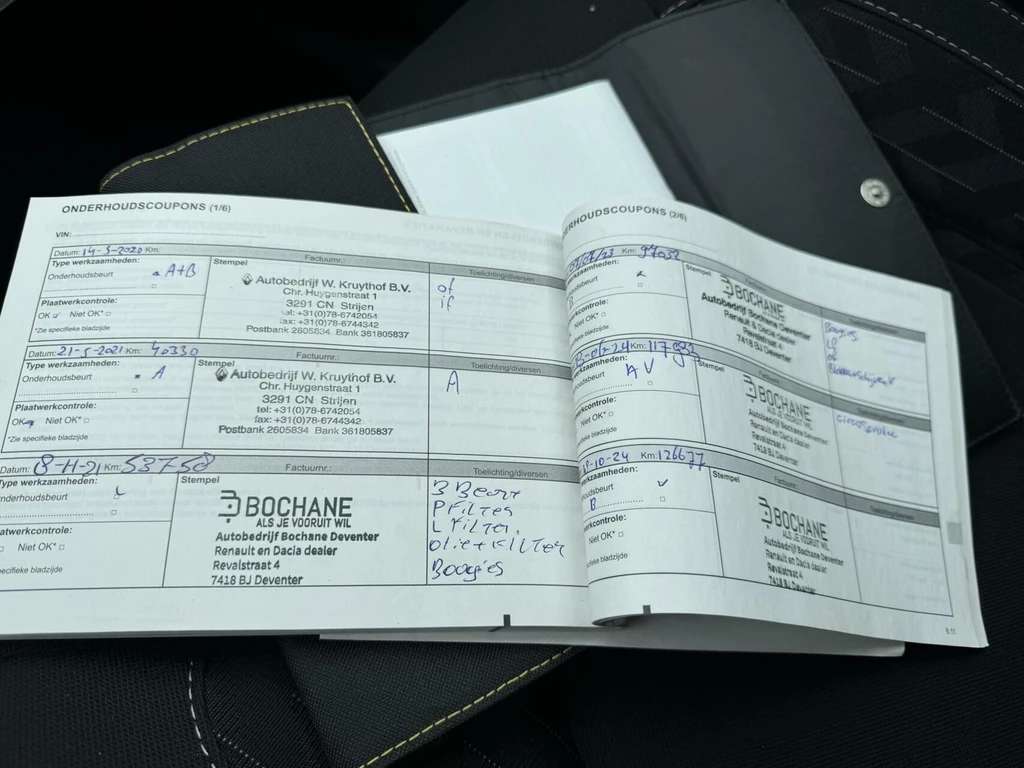 ONDERHOUDSCOUPONS (1/6)
VIN:
Datum: 14-5-2020 Km:
Factuurnr.:
Type werkzaamheden:
Stempel
Toelichting/diversen
Onderhoudsbeurt A+B
Autobedrijf W. Kruythof B.V.
Chr. Huygenstraat 1
3291 CN Strijen
tel: +31(0)78-6742054
fax: +31(0)78-6744342
Postbank 2605834 Bank 361805837
of
if
Plaatwerkcontrole:
OK Niet OK*
*Zie specifieke bladzijde
Datum: 21-5-2021 Km: 40330
Factuurnr.:
Type werkzaamheden:
Stempel
Toelichting/diversen
Onderhoudsbeurt A
Autobedrijf W. Kruythof B.V.
Chr. Huygenstraat 1
3291 CN Strijen
tel: +31(0)78-6742054
fax: +31(0)78-6744342
Postbank 2605834 Bank 361805837
A
Plaatwerkcontrole:
OK Niet OK*
*Zie specifieke bladzijde
Datum: 8-11-21 Km: 53758
Factuurnr.:
Type werkzaamheden:
Stempel
Toelichting/diversen
nderhoudsbeurt
BOCHANE
ALS JE VOORUIT WIL
Autobedrijf Bochane Deventer
Renault en Dacia dealer
Revalstraat 4
7418 BJ Deventer
B Beurt
P Filter
L Filter
Olie + Filter
Boogies
aatwerkcontrole:
Niet OK*
pecifieke bladzijde
ONDERHOUDSCOUPONS (2/6)
/23 Km: 97032
werkzaamheden:
Stempel
B
BOCHANE
Autobedrijf Bochane Deventer
Renault & Dacia dealer
Revalstraat 4
7418 BJ Deventer
Bougies
werkcontrole:
Niet OK*
fieke bladzijde
-24 Km:
werkzaamheden:
Stempel
oudsbeurt A V
BOCHANE
ALS JE VOORUIT WIL
Autobedrijf Bochane Deventer
Renault en Dacia dealer
Revalstraat 4
7418 BJ Deventer
rkcontrole:
Niet OK*
fieke bladzijde
-10-24 Km: 126677
werkzaamheden:
Stempel
houdsbeurt
B
BOCHANE
ALS JE VOORUIT WIL
Autobedrijf Bochane Deventer
Renault en Dacia dealer
Revalstraat 4
7418 BJ Deventer
rkcontrole:
Niet OK*
cifieke bladzijde
6.11